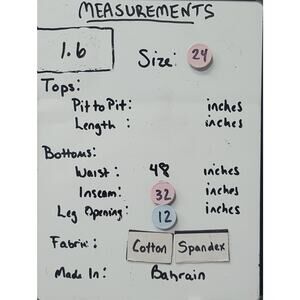 MEASUREMENTS
1.6
Size: 24
Tops:
Pit to Pit: inches
Length: inches
Bottoms:
Waist: 48 inches
Inseam: 32 inches
Leg Opening: 12 inches
Fabric: Cotton Spandex
Made In: Bahrain